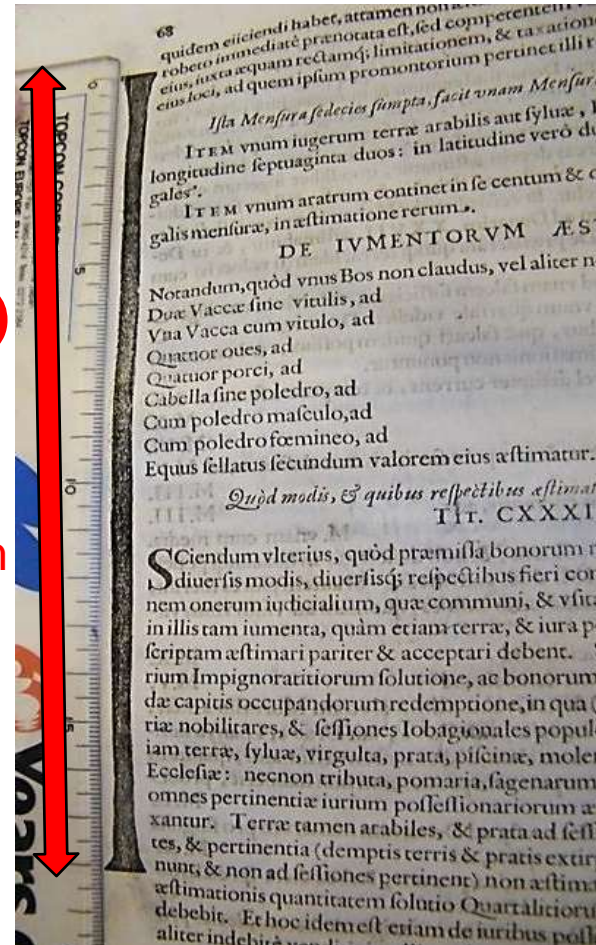 68
quidem eiiciendi habet, attamen non
robero immediatè prænotata est, sed competentem
eius, iuxta æquam rectamq; limitationem, & taxatione
eius loci, ad quem ipsum promontorium pertinet illi
Ista Mensura sedecies sumpta, facit vnam Mensur
ITEM vnum iugerum terræ arabilis aut syluæ,
longitudine septuaginta duos: in latitudine verò du
gales.
ITEM vnum aratrum continet in se centum &
galis mensuræ, in æstimatione rerum.
DE IVMENTORVM ÆS
Notandum, quòd vnus Bos non claudus, vel aliter n
Duæ Vaccæ sine vitulis, ad
Vna Vacca cum vitulo, ad
Quatuor oues, ad
Quatuor porci, ad
Cabella sine poledro, ad
Cum poledro masculo, ad
Cum poledro fœmineo, ad
Equus sellatus secundum valorem eius æstimatur.
Quòd modis, & quibus respectibus æstimat
TIT. CXXXI
SCiendum vlterius, quòd præmissa bonorum
diuersis modis, diuersisq; respectibus fieri con
nem onerum iudicialium, quæ communi, & vsita
in illis tam iumenta, quàm etiam terræ, & iura p
scriptam æstimari pariter & acceptari debent.
rium Impignoratitiorum solutione, ac bonorum
dæ capitis occupandorum redemptione, in qua
riæ nobilitares, & sessiones Iobagionales popul
iam terræ, syluæ, virgulta, prata, piscinæ, molen
Ecclesiæ: necnon tributa, pomaria, sagenarum
omnes pertinentiæ iurium possessionariorum æ
xantur. Terræ tamen arabiles, & prata ad sess
tes, & pertinentia (demptis terris & pratis extir
nunt, & non ad sessiones pertinent) non æstima
æstimationis quantitatem solutio Quartalitioru
debebit. Et hoc idem est etiam de iuribus poss
aliter indebitè
0
5
10
15
TOPCON
TOPCON EUROPE
Years